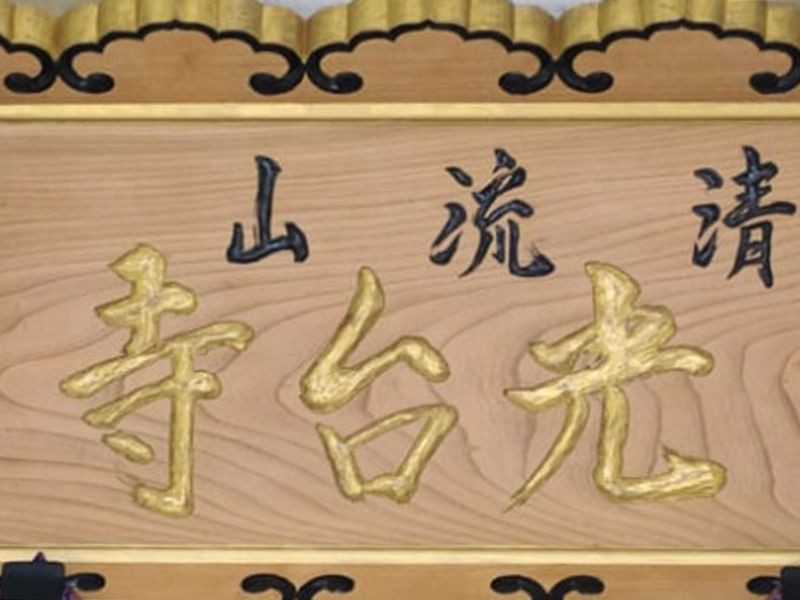 清流山
光台寺